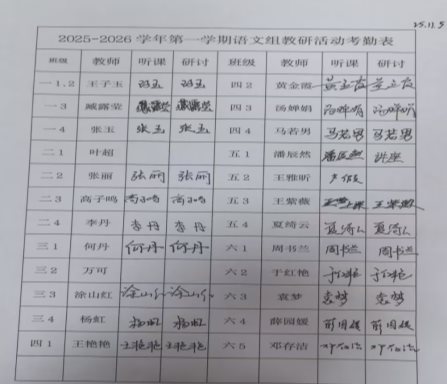 25.11.5
2025-2026 学年第一学期语文组教研活动考勤表
班级 教师 听课 研讨 班级 教师 听课 研讨
一1.2 王子玉 四2 黄金霞
一3 臧露莹 臧露莹 臧露莹 四3 汤婵娟 汤婵娟 汤婵娟
一4 张玉 张玉 张玉 四4 马若男 马若男 马若男
二1 叶超 五1 潘辰然 潘辰然
二2 张丽 张丽 张丽 五2 王雅昕 产假
二3 高子鸣 高子鸣 高子鸣 五3 王紫薇 王紫薇
二4 李丹 李丹 李丹 五4 夏绮云 夏绮云 夏绮云
三1 何丹 何丹 何丹 六1 周书兰 周书兰 周书兰
三2 万可 六2 于红艳 于红艳 于红艳
三3 涂山红 涂山红 涂山红 六3 袁梦 袁梦 袁梦
三4 杨虹 杨虹 杨虹 六4 薛园媛
四1 王艳艳 王艳艳 王艳艳 六5 邓存洁